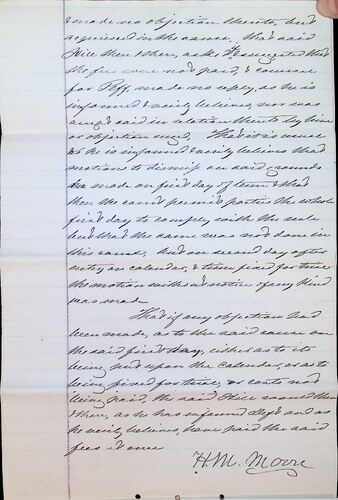 made no objection thereto, but
acquiesced in the same. That said
Hill then & there, asked & suggested that
the fees were not paid, & counsel
for Plff. made no reply, as he is
informed & verily believes, nor was
anyt said in relation thereto by him
or objection urged. That it is usual
& he is informed & verily believes that
motions to dismiss on said grounds
are made on first day of term & that
then the court permits parties the whole
first day to comply with the rule
but that the same was not done in
this cause, but on second day after
entry on calendar, & time fixed for trial
the motion without notice of any kind
was made
That if any objection had
been made, as to the said cause on
the said first day, either as to its
being not upon the calendar, or as to
being fixed for trial, or costs not
being paid, the said Hill would then
& there, as he has informed and as
he verily believes, have paid the said
fees at once
H. M. Moore